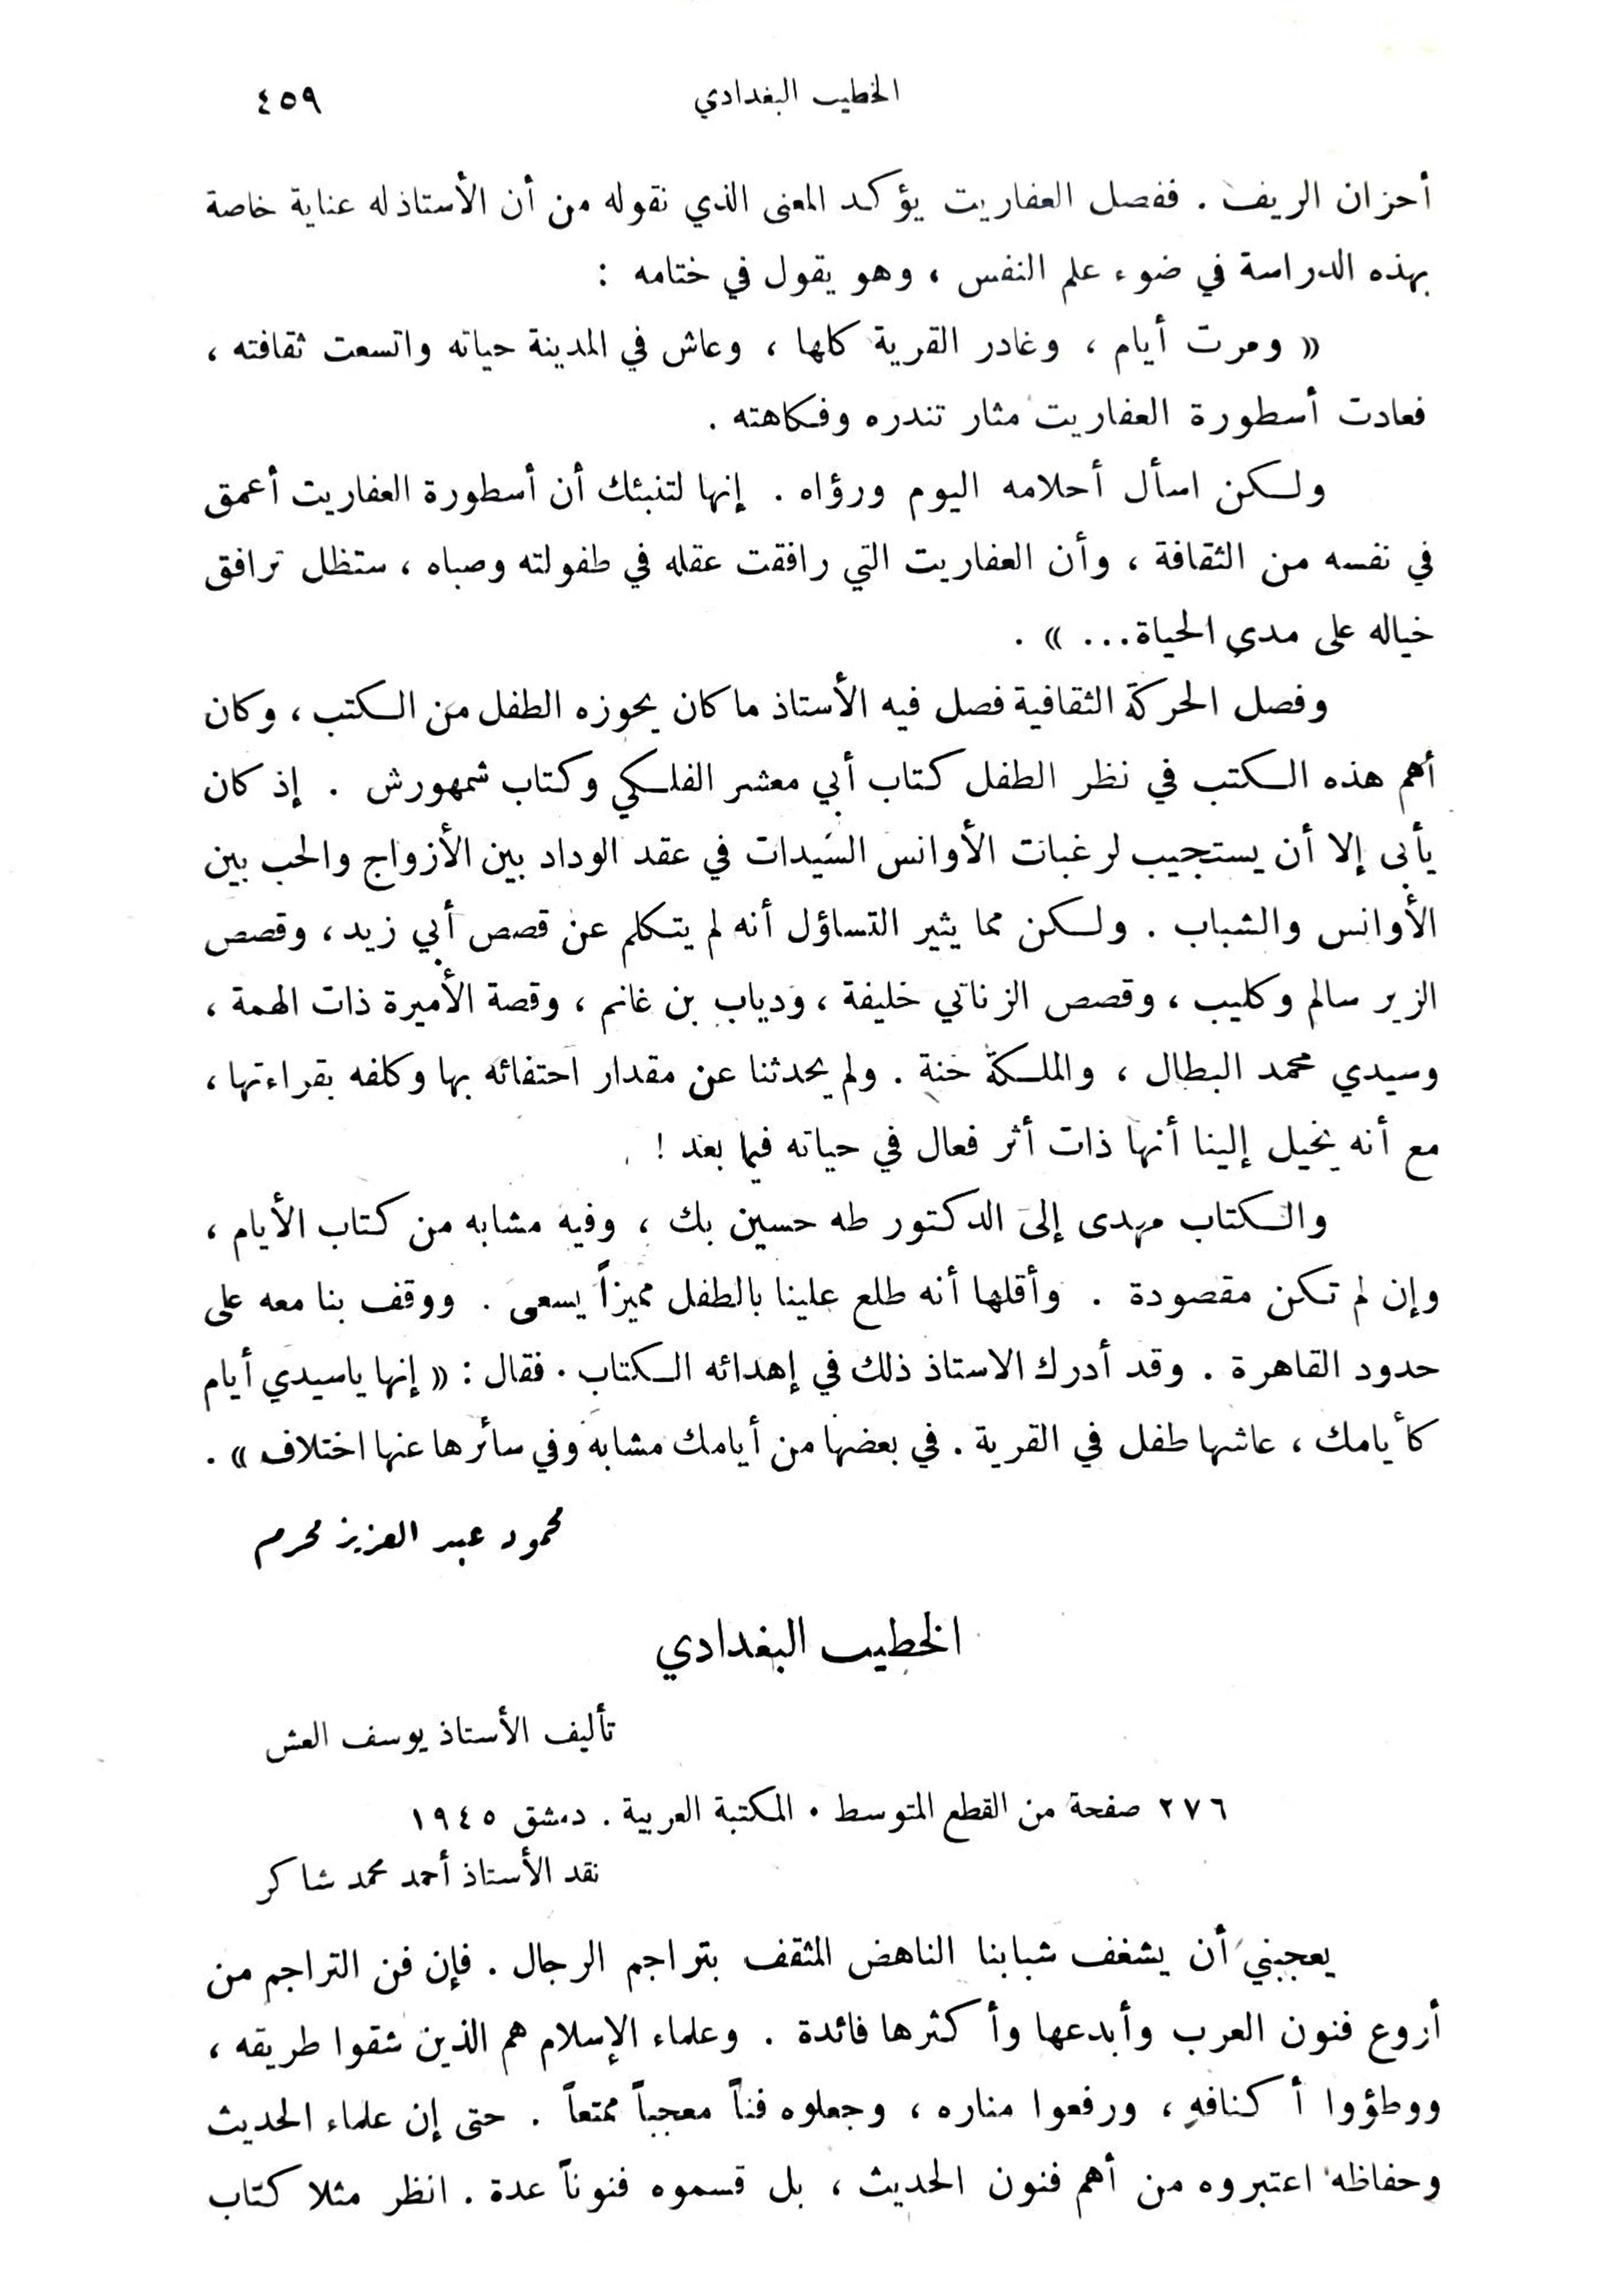 الخطيب البغدادي ٤٥٩
أحزان الريف . ففصل العفاريت يؤكد المعنى الذي نقوله من أن الأستاذ له عناية خاصة
بهذه الدراسة في ضوء علم النفس ، وهو يقول في ختامه :
« ومرت أيام ، وغادر القرية كلها ، وعاش في المدينة حياته واتسعت ثقافته ،
فعادت أسطورة العفاريت مثار تندره وفكاهته .
ولكن اسأل أحلامه اليوم ورؤاه . إنها لتنبئك أن أسطورة العفاريت أعمق
في نفسه من الثقافة ، وأن العفاريت التي رافقت عقله في طفولته وصباه ، ستظل ترافق
خياله على مدى الحياة... » .
وفصل الحركة الثقافية فصل فيه الأستاذ ما كان يحوزه الطفل من الكتب ، وكان
أهم هذه الكتب في نظر الطفل كتاب أبي معشر الفلكي وكتاب شمهورش . إذ كان
يأبى إلا أن يستجيب لرغبات الأوانس السيدات في عقد الوداد بين الأزواج والحب بين
الأوانس والشباب . ولكن مما يثير التساؤل أنه لم يتكلم عن قصص أبي زيد ، وقصص
الزير سالم وكليب ، وقصص الزناتي خليفة ، ودياب بن غانم ، وقصة الأميرة ذات الهمة ،
وسيدي محمد البطال ، والملكة خنة . ولم يحدثنا عن مقدار احتفائه بها وكلفه بقراءتها ،
مع أنه يخيل إلينا أنها ذات أثر فعال في حياته فيما بعد !
والكتاب مهدى إلى الدكتور طه حسين بك ، وفيه مشابه من كتاب الأيام ،
وإن لم تكن مقصودة . وأقلها أنه طلع علينا بالطفل مميزاً يسعى . ووقف بنا معه على
حدود القاهرة . وقد أدرك الاستاذ ذلك في إهدائه الكتاب . فقال : « إنها ياسيدي أيام
كأيامك ، عاشها طفل في القرية . في بعضها من أيامك مشابه وفي سائرها عنها اختلاف » .
محمود عبد العزيز محرم
الخطيب البغدادي
تأليف الأستاذ يوسف العش
٢٧٦ صفحة من القطع المتوسط . المكتبة العربية . دمشق ١٩٤٥
نقد الأستاذ أحمد محمد شاكر
يعجبني أن يشغف شبابنا الناهض المثقف بتراجم الرجال . فإن فن التراجم من
أروع فنون العرب وأبدعها وأكثرها فائدة . وعلماء الإسلام هم الذين شقوا طريقه ،
ووطؤوا أكنافه ، ورفعوا مناره ، وجعلوه فناً معجباً ممتعاً . حتى إن علماء الحديث
وحفاظه اعتبروه من أهم فنون الحديث ، بل قسموه فنوناً عدة . انظر مثلا كتاب